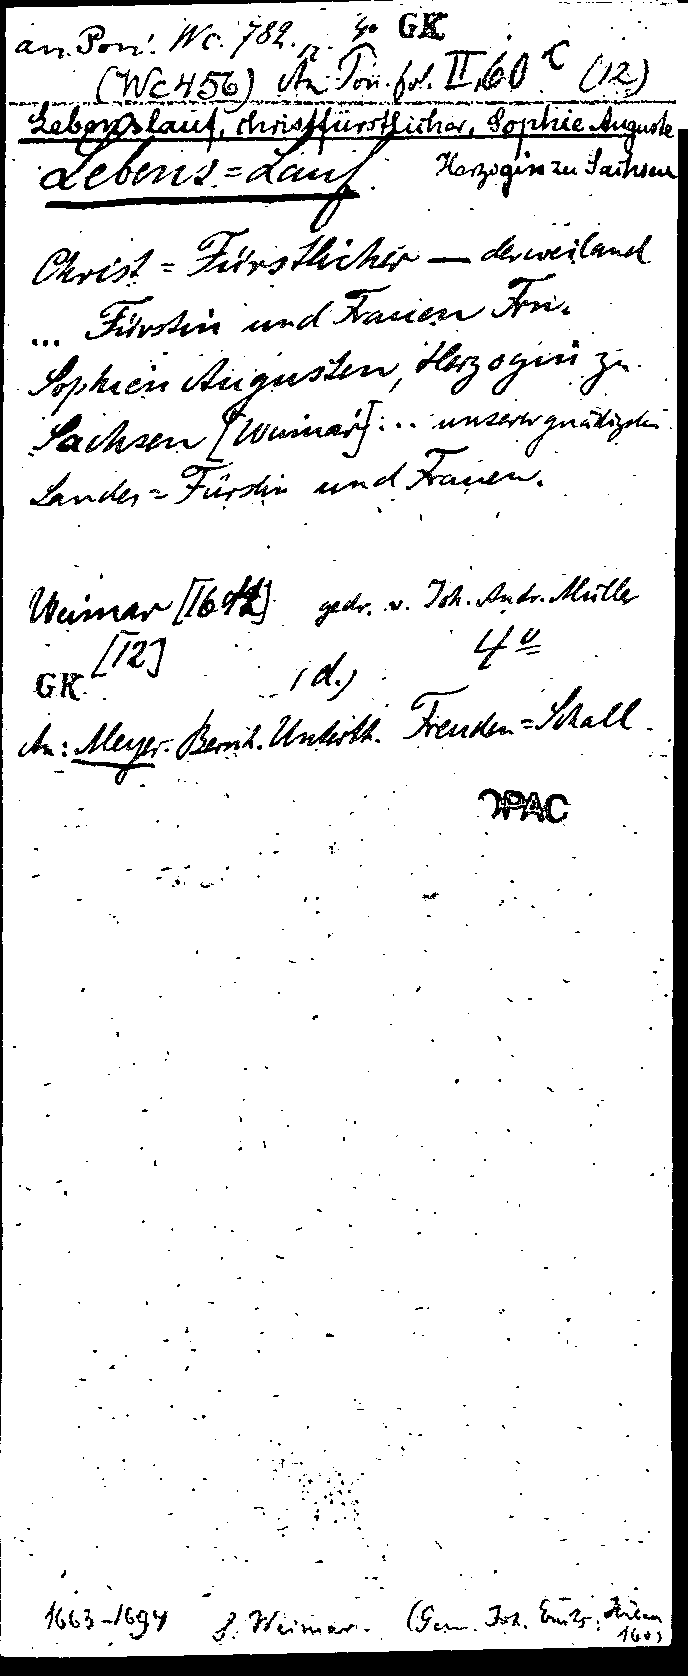 an. Pon. Wc. 782. n. 4o GK
(Wc 456) An Pon. fol. II, 60 c (12)
Lebenslauf, christfürstlicher, Sophie Auguste
Lebens=Lauf. Herzogin zu Sachsen
Christ=Fürstlicher — der weiland
... Fürstin und Frauen Frn.
Sophien Augusten, Herzogin zu
Sachsen [Weimar] ... unserer gnädigsten
Landes=Fürstin und Frauen.
Weimar gedr. v. Joh. Andr. Müller
[12] 4o
GK (d.)
An: Meyer. Bernh. Unterth. Freuden=Schall.
OPAC
1663-1694 f. Weimar. (Gem. Joh.